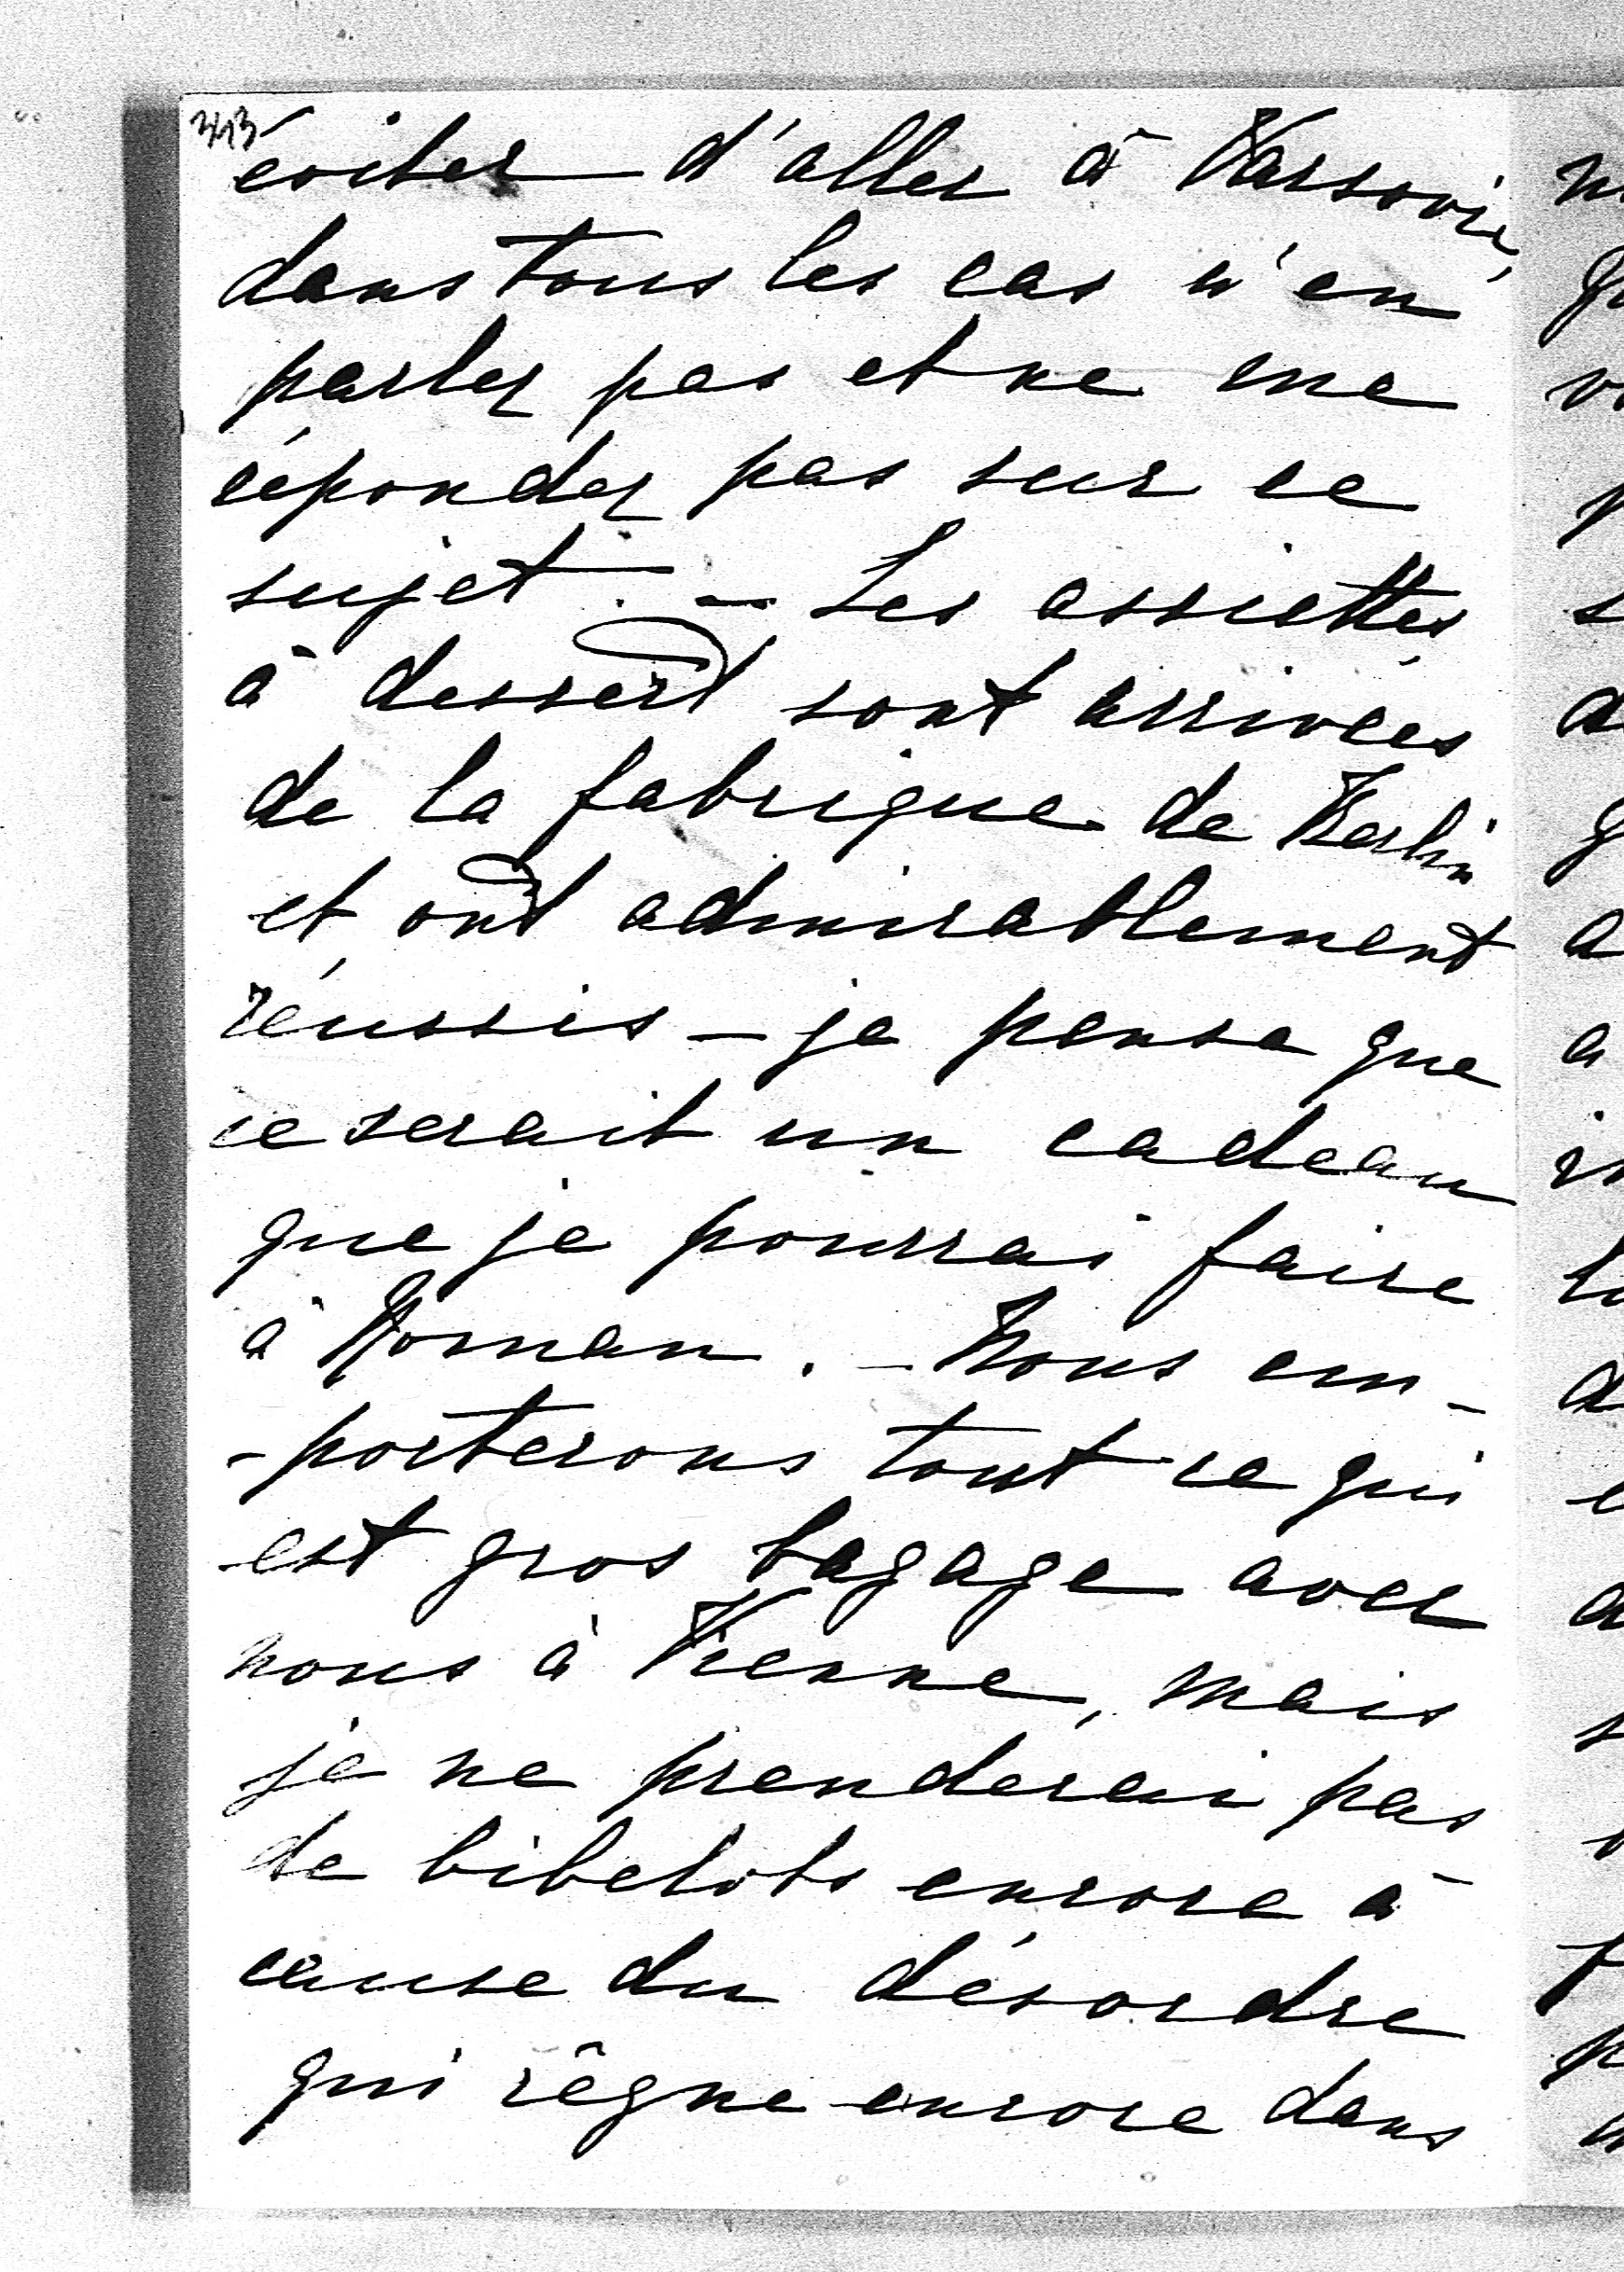 343
éviter d'aller à Varsovie,
dans tous les cas n'en
parlez pas et ne me
répondez pas sur ce
sujet. – Les assiettes
à dessert sont arrivées
de la fabrique de Berlin
et ont admirablement
réussis – je pense que
ce serait un cadeau
que je pourrai faire
à Roman. – Nous em-
-porterons tout ce qui
est gros bagage avec
nous à Vienne, mais
je ne prenderai pas
de bibelots encore à
cause du désordre
qui règne encore dans